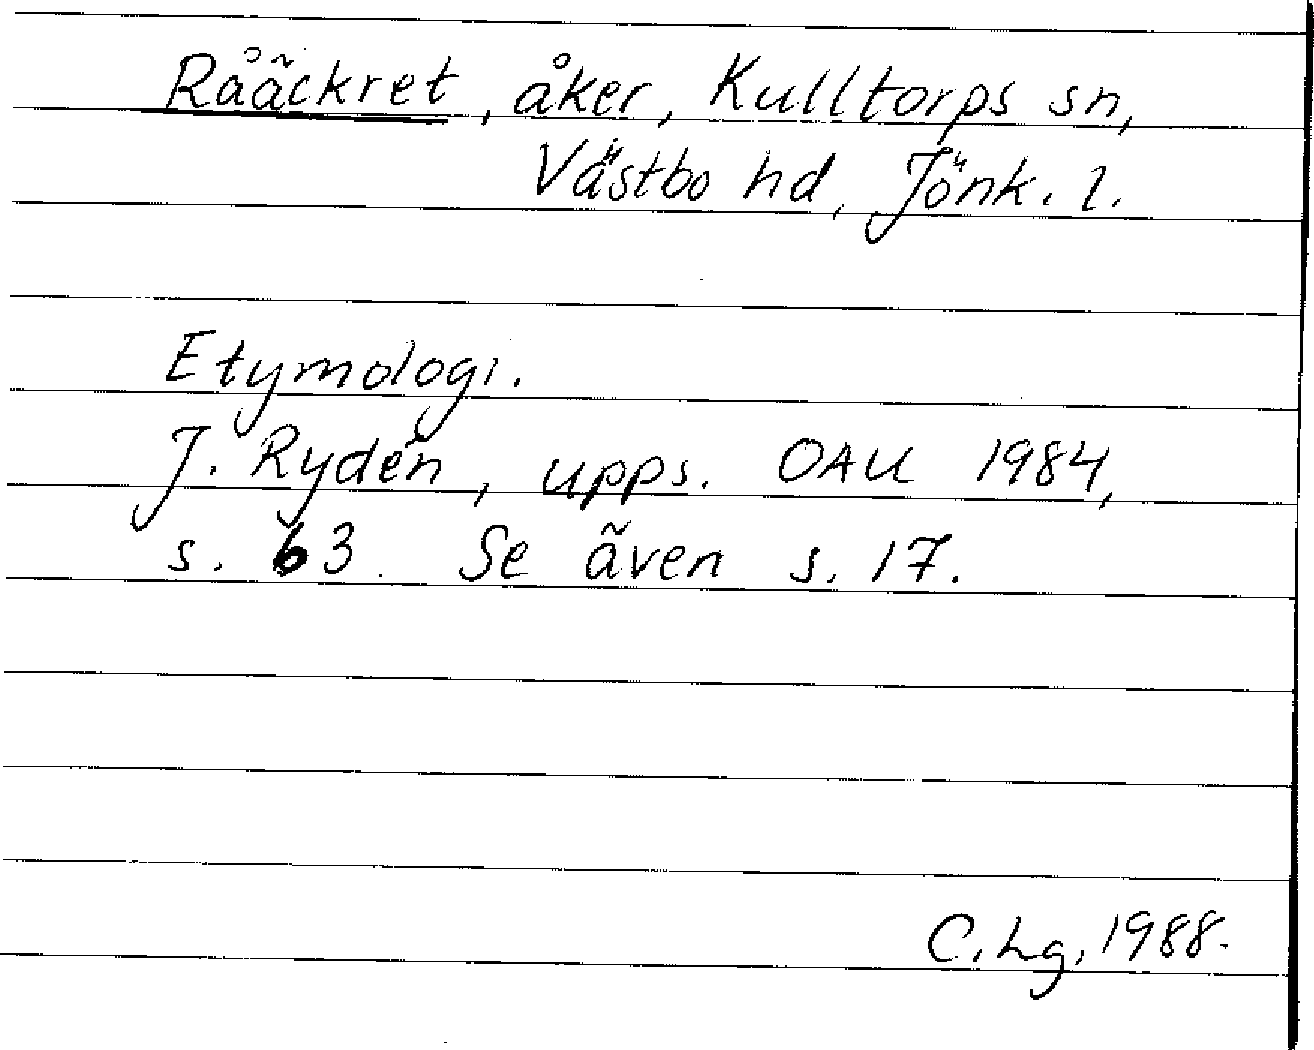 Rååckret, åker, Kulltorps sn,
Västbo hd, Jönk. l.
Etymologi.
J. Rydén, upps. OAU 1984,
s. 63. Se även s. 17.
C. Lg, 1988.